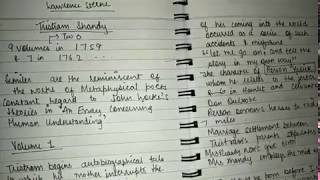 Lawrence Sterne
Tristram Shandy
→ Two
9 volumes in 1759
& 7 in 1762 ...
Similes are the reminiscent
of the works of Metaphysical poets
constant regard to John Locke's
theories in An Essay concerning
Human Understanding,
Volume 1
Tristram begins autobiographical tale
in which his mother interrupts the
of his coming into the world
occurred as a series of such
accidents &
let me go on, and tell the
story in my own way"
The character of Parson Yorick
when he relates to the jester
in Hamlet and
Don Quixote
Parson
7 miles
Marriage settlement between
Tristram's parents
Mrs Shandy
before